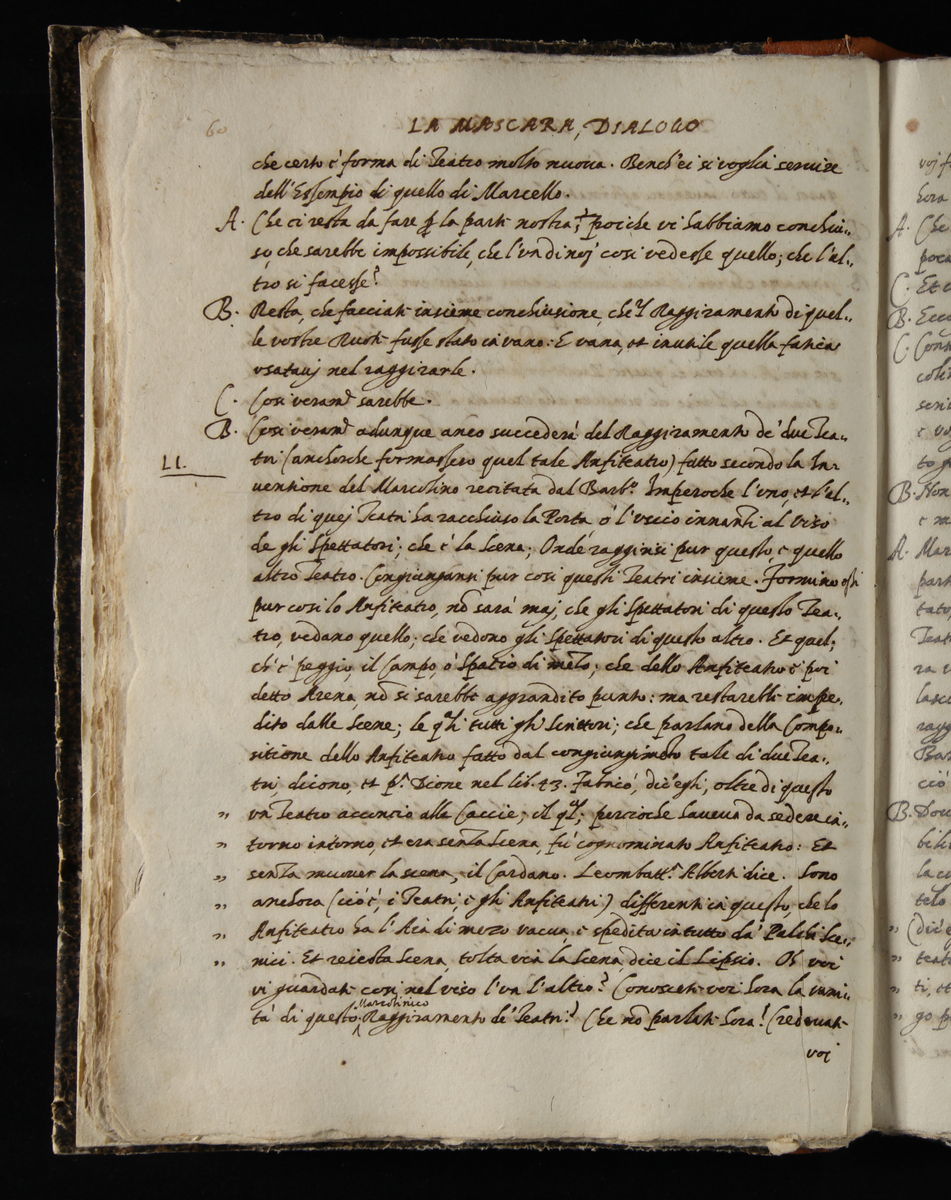 60
LA MASCARA, DIALOGO
che certo è forma di Teatro molto nuoua. Bench'ei si voglia seruire
dell'Essempio di quello di Marcello.
A. Che ci resta da fare p la parte nostra? poiche vi habbiamo conchiu=
so, che sarebbe impossibile, che l'vn di noj così vedesse quello; che l'al=
tro si facesse?
B. Resta, che facciate insieme conchiusione, che'l Raggiramento di quel=
le vostre Ruote fusse stato in vano: E vana, et inutile quella fatica
vsatauj nel raggirarle.
C. Così veramte sarebbe.
B. Così veramte adunque anco succederà del Raggiramento de' due Tea=
LI. tri (anchorche formassero quel tale Anfiteatro) fatto secondo la In=
uentione del Marcolino recitata dal Barbo. Imperoche l'uno, et l'al=
tro di quej Teatri ha racchiuso la Porta ò l'vscio innanti al viso
de gli Spettatori; che è la Scena; Onde raggirisi pur questo e quello
altro Teatro. Congiungansi pur così questi Teatri insieme. Formino essi
pur così lo Anfiteatro, nō sarà maj, che gli Spettatori di questo Tea=
tro, vedano quello; che vedono gli Spettatori di questo altro. Et quel,
ch'è peggio, il Campo, ò Spatio di mezo; che dello Anfiteatro è poi
detto Arena, nō si sarebbe aggrandito punto: ma restarebbe impe=
dito dalle Scene; le qli tutti gli Scrittori; che parlano della Compo=
sitione dello Anfiteatro fatto dal congiungimēto tale di due Tea=
tri, dicono, et pa. Dione nel lib. 43. Fabricò, dic'egli, oltre di questo
„ vn Teatro acconcio alle Caccie; il ql; percioche haueua da sedere in=
„ torno intorno, et era senza Scena, fù cognominato Anfiteatro: Et
„ senza muouer la scena, il Cardano. Leombatta. Alberti dice. Sono
„ anchora (cioè, i Teatri, e gli Anfiteatri) differenti in questo, che lo
„ Anfiteatro ha l'Aia di mezo vacua, e spedita in tutto da' Palchi Sce=
„ nici. Et reiecta Scena, tolta via la Scena, dice il Lipsio. Oh voi
vi guardate così nel viso l'vn l'altro? Conoscete voi hora la vani=
tà di questo ^Marcolinico Raggiramento de' Teatri? Che nō parlate hora? Credeuate
voi